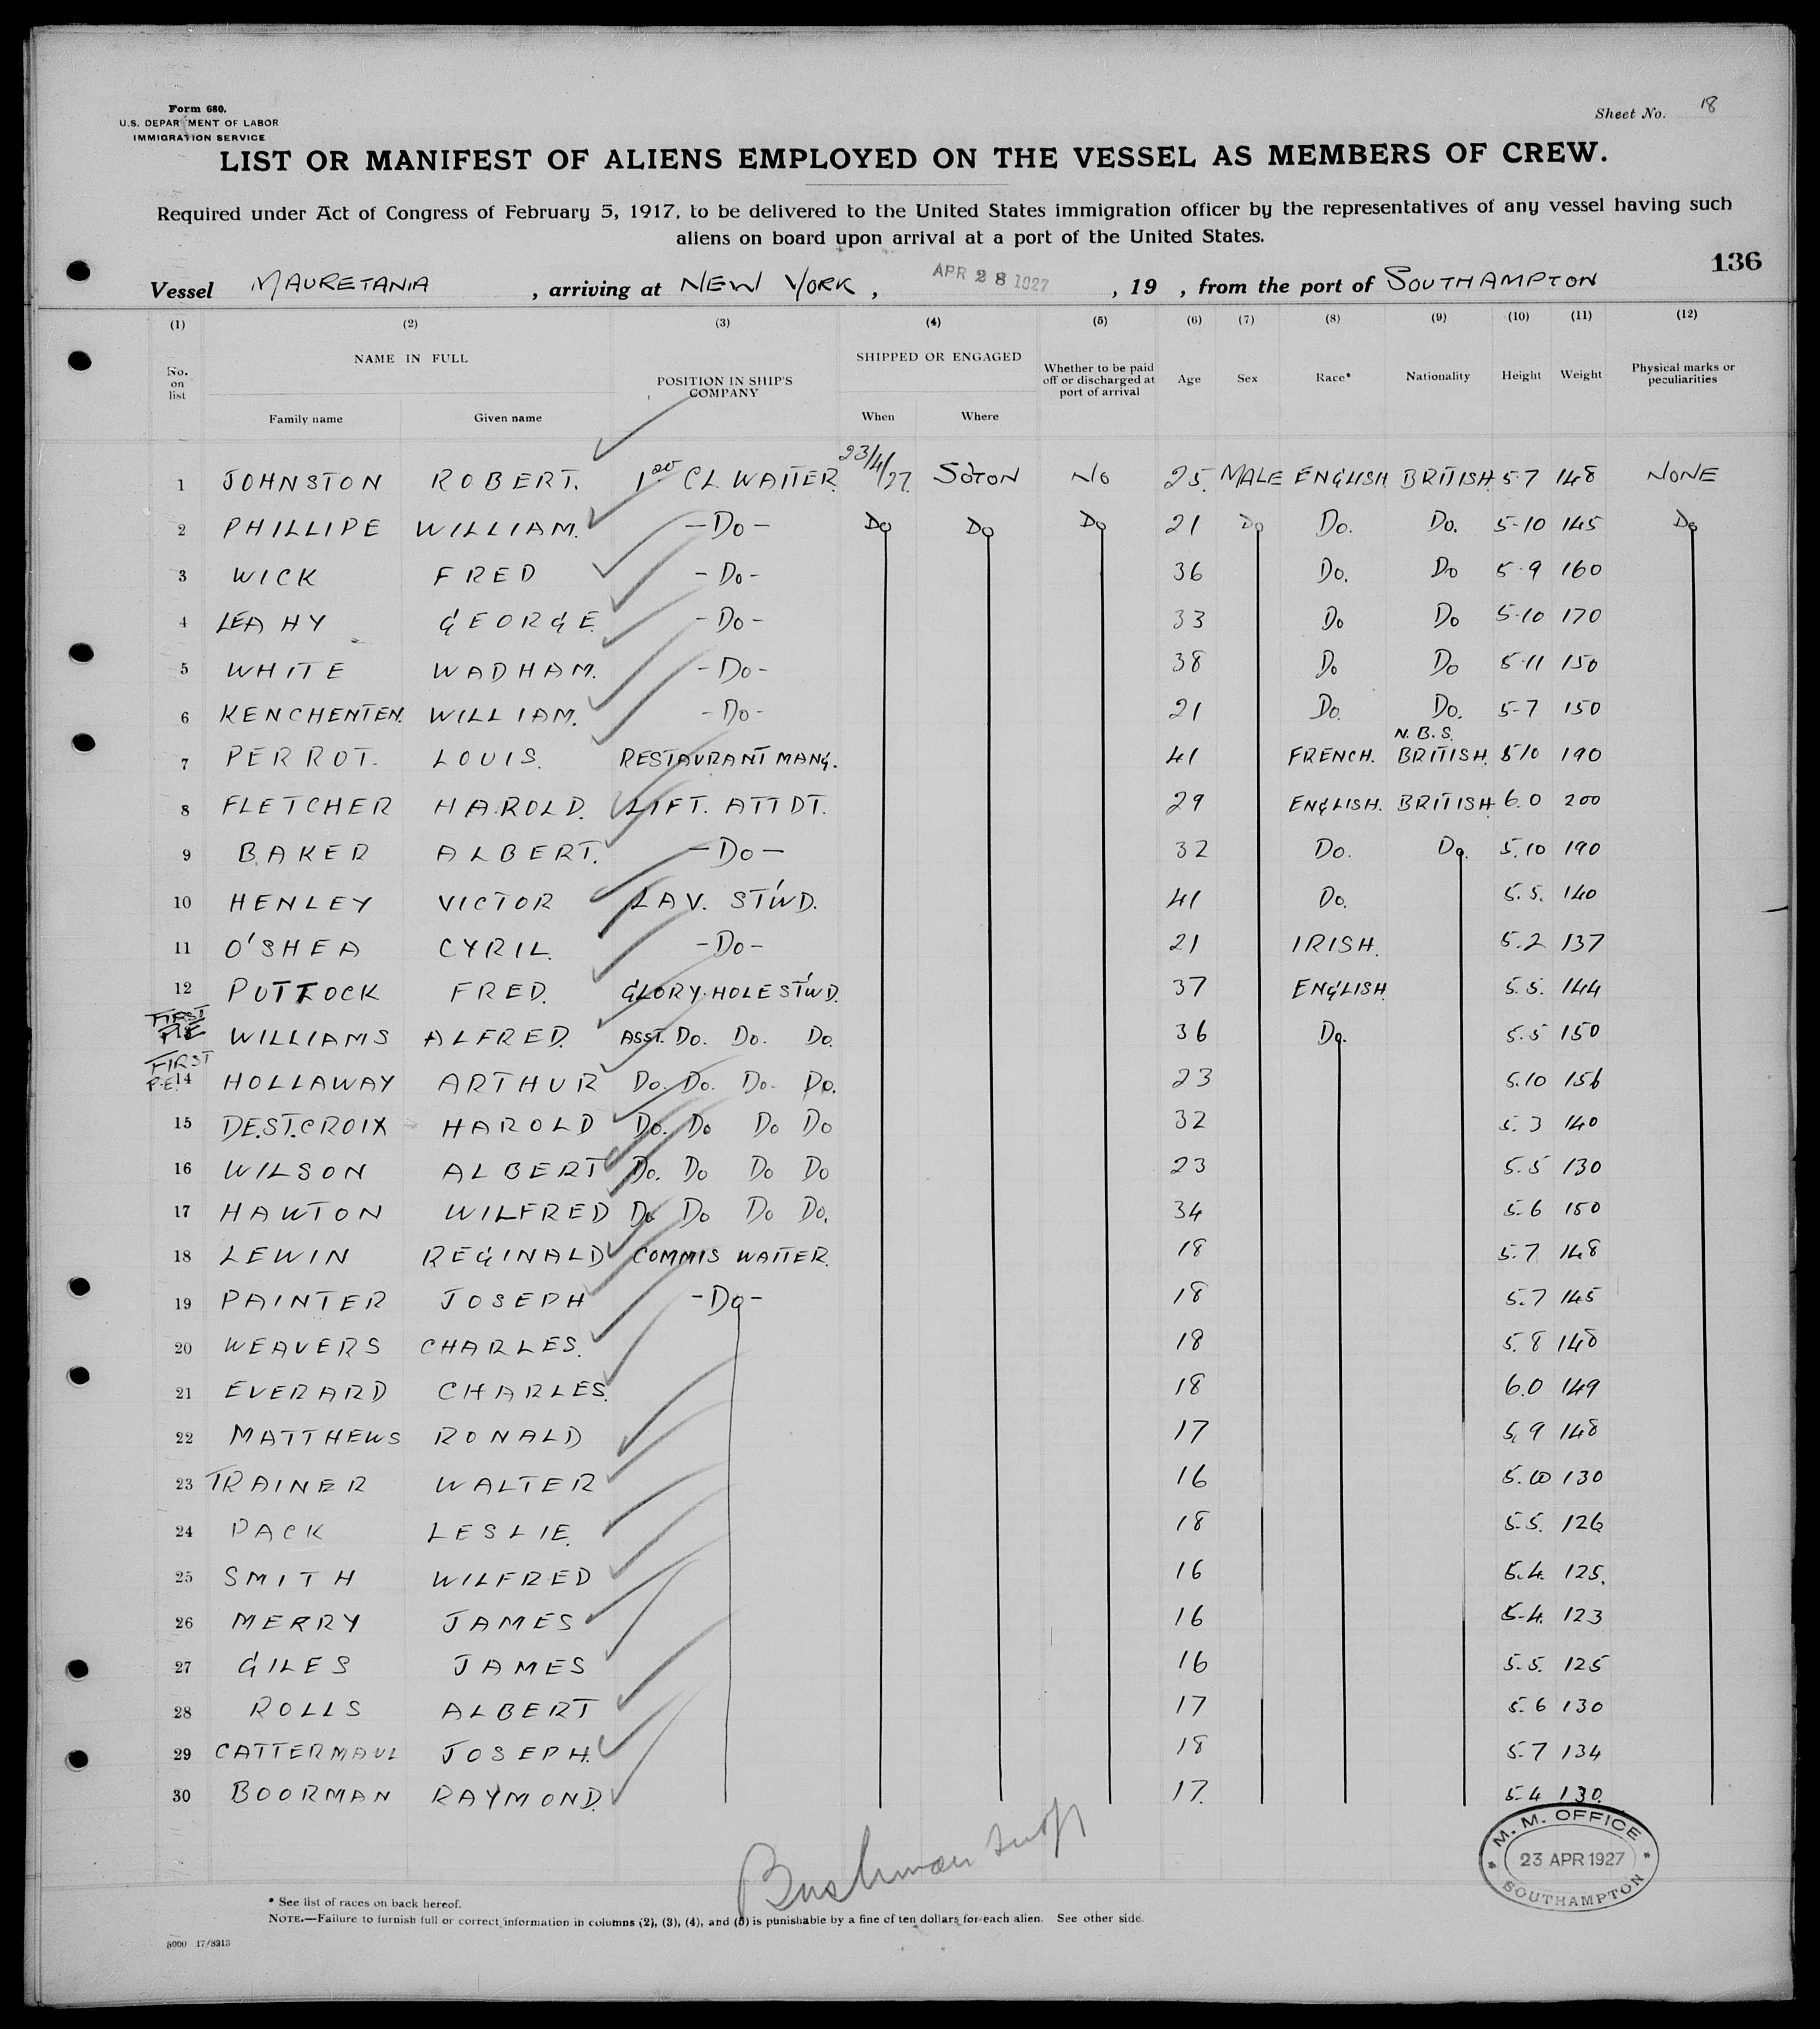 Form 680.
U.S. DEPARTMENT OF LABOR
IMMIGRATION SERVICE
Sheet No. 18
LIST OR MANIFEST OF ALIENS EMPLOYED ON THE VESSEL AS MEMBERS OF CREW.
Required under Act of Congress of February 5, 1917, to be delivered to the United States immigration officer by the representatives of any vessel having such
aliens on board upon arrival at a port of the United States.
136
Vessel MAURETANIA, arriving at NEW YORK, APR 28 1927, 19 , from the port of SOUTHAMPTON
(1) (2) (3) (4) (5) (6) (7) (8) (9) (10) (11) (12)
No. on list NAME IN FULL Family name Given name POSITION IN SHIP'S COMPANY SHIPPED OR ENGAGED When Where Whether to be paid off or discharged at port of arrival Age Sex Race* Nationality Height Weight Physical marks or peculiarities
1 JOHNSTON ROBERT. CL. WAITER. 23/4/27. SOTON NO 25. MALE ENGLISH BRITISH 5-7 148 NONE
2 PHILLIPE WILLIAM. -DO- DO DO DO 21 DO DO. DO. 5-10 145 DO
3 WICK FRED -DO- 36 DO. DO 5-9 160
4 LEAHY GEORGE. -DO- 33 DO DO 5-10 170
5 WHITE WADHAM. -DO- 38 DO DO 5-11 150
6 KENCHENTEN. WILLIAM. -DO- 21 DO. DO. 5-7 150
N.B.S.
7 PERROT. LOUIS. RESTAURANT MANG. 41 FRENCH. BRITISH. 5/10 190
8 FLETCHER HAROLD. LIFT. ATTDT. 29 ENGLISH. BRITISH 6.0 200
9 BAKER ALBERT. -DO- 32 DO. DO. 5.10 190
10 HENLEY VICTOR LAV. ST'WD. 41 DO. 5.5. 140
11 O'SHEA CYRIL. -DO- 21 IRISH. 5.2 137
12 PUTTOCK FRED. GLORY-HOLE ST'WD. 37 ENGLISH. 5.5. 144
FIRST
WILLIAMS ALFRED. ASST. DO. DO. DO. 36 DO. 5.5 150
FIRST
P.E. 14 HOLLAWAY ARTHUR DO. DO. DO. DO. 23 5.10 156
15 DE.ST.CROIX HAROLD DO. DO DO DO 32 5.3 140
16 WILSON ALBERT DO. DO DO DO 23 5.5 130
17 HAWTON WILFRED DO DO DO DO. 34 5.6 150
18 LEWIN REGINALD COMMIS WAITER. 18 5.7 148
19 PAINTER JOSEPH -DO- 18 5.7 145
20 WEAVERS CHARLES. 18 5.8 148
21 EVERARD CHARLES. 18 6.0 149
22 MATTHEWS RONALD 17 5.9 148
23 TRAINER WALTER 16 5.10 130
24 PACK LESLIE. 18 5.5. 126
25 SMITH WILFRED 16 5.4. 125.
26 MERRY JAMES 16 5-4. 123
27 GILES JAMES 16 5.5. 125
28 ROLLS ALBERT 17 5.6 130
29 CATTERMAUL JOSEPH. 18 5.7 134
30 BOORMAN RAYMOND. 17. 5-4 130.
M. M. OFFICE
23 APR 1927
SOUTHAMPTON
* See list of races on back hereof.
NOTE.—Failure to furnish full or correct information in columns (2), (3), (4), and (5) is punishable by a fine of ten dollars for each alien. See other side.
5000 17/8213